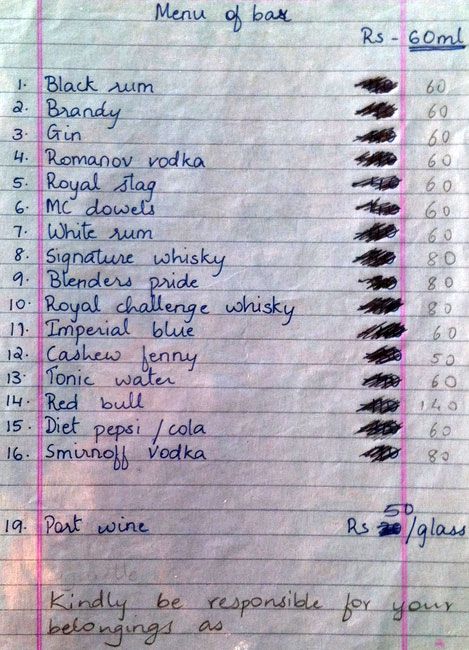 Menu of bar
Rs - 60ml
1. Black rum 60
2. Brandy 60
3. Gin 60
4. Romanov vodka 60
5. Royal stag 60
6. MC dowels 60
7. White rum 60
8. Signature whisky 80
9. Blenders pride 80
10. Royal challenge whisky 80
11. Imperial blue 60
12. Cashew fenny 50
13. Tonic water 60
14. Red bull 140
15. Diet pepsi / cola 60
16. Smirnoff vodka 80
50
19. Port wine Rs /glass
Kindly be responsible for your
belongings as